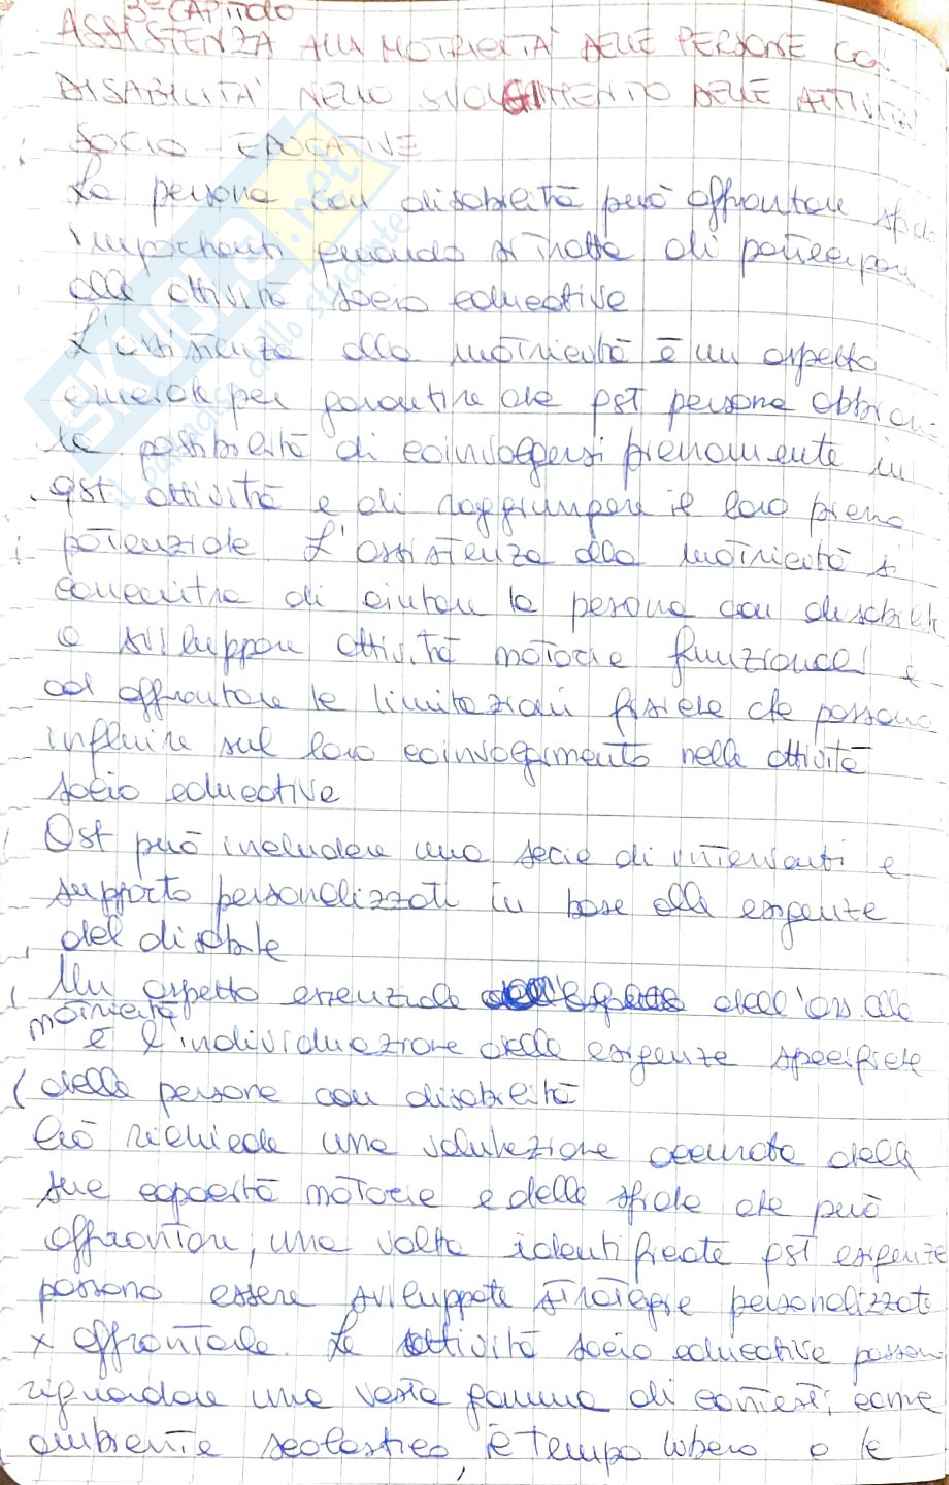 3° CAPITOLO
ASSISTENZA ALLA MOTRICITÀ DELLE PERSONE CON
DISABILITÀ NELLO SVOLGIMENTO DELLE ATTIVITÀ
SOCIO-EDUCATIVE
La persona con disabilità può affrontare sfide
importanti quando si tratta di partecipare
alle attività socio educative
L'assistenza alla motricità è un aspetto
cruciale per garantire che qst persone abbiano
la possibilità di coinvolgersi pienamente in
qst attività e di raggiungere il loro pieno
potenziale L'assistenza alla motricità si
concentra di aiutare le persona con disabilità
a sviluppare attività motorie funzionali e
ad affrontare le limitazioni fisiche che possono
influire sul loro coinvolgimento nelle attività
socio educative
Qst può includere una serie di interventi e
supporto personalizzati in base alle esigenze
del disabile
Un aspetto essenziale dell'ass. alla
motricità
è l'individuazione delle esigenze specifiche
delle persone con disabilità
Ciò richiede una valutazione accurata delle
sue capacità motorie e delle sfide che può
affrontare, una volta identificate qst esigenze
possono essere sviluppate strategie personalizzate
x affrontarle. Le attività socio educative possono
riguardare una vasta gamma di contesti, come
ambiente scolastico, il tempo libero o le
SKUOLA.net
il paradiso dello studente